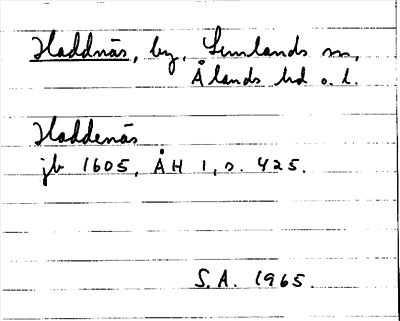 Haddnäs, by, Lumlands sn,
Ålands hd o. l.
Haddenäs
jb 1605, ÅH 1, s. 425.
S.A. 1965.